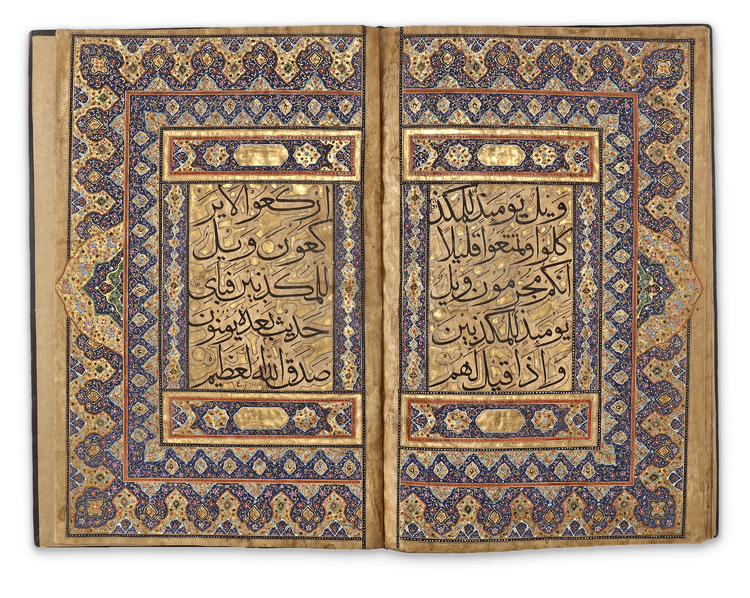 ويل يومئذ للمكذبين
كلوا وتمتعوا قليلا
انكم مجرمون ويل
يومئذ للمكذبين
واذا قيل لهم
اركعوا لا ير
كعون ويل
للمكذبين فباى
حديث بعده يومنون
صدق الله العظيم